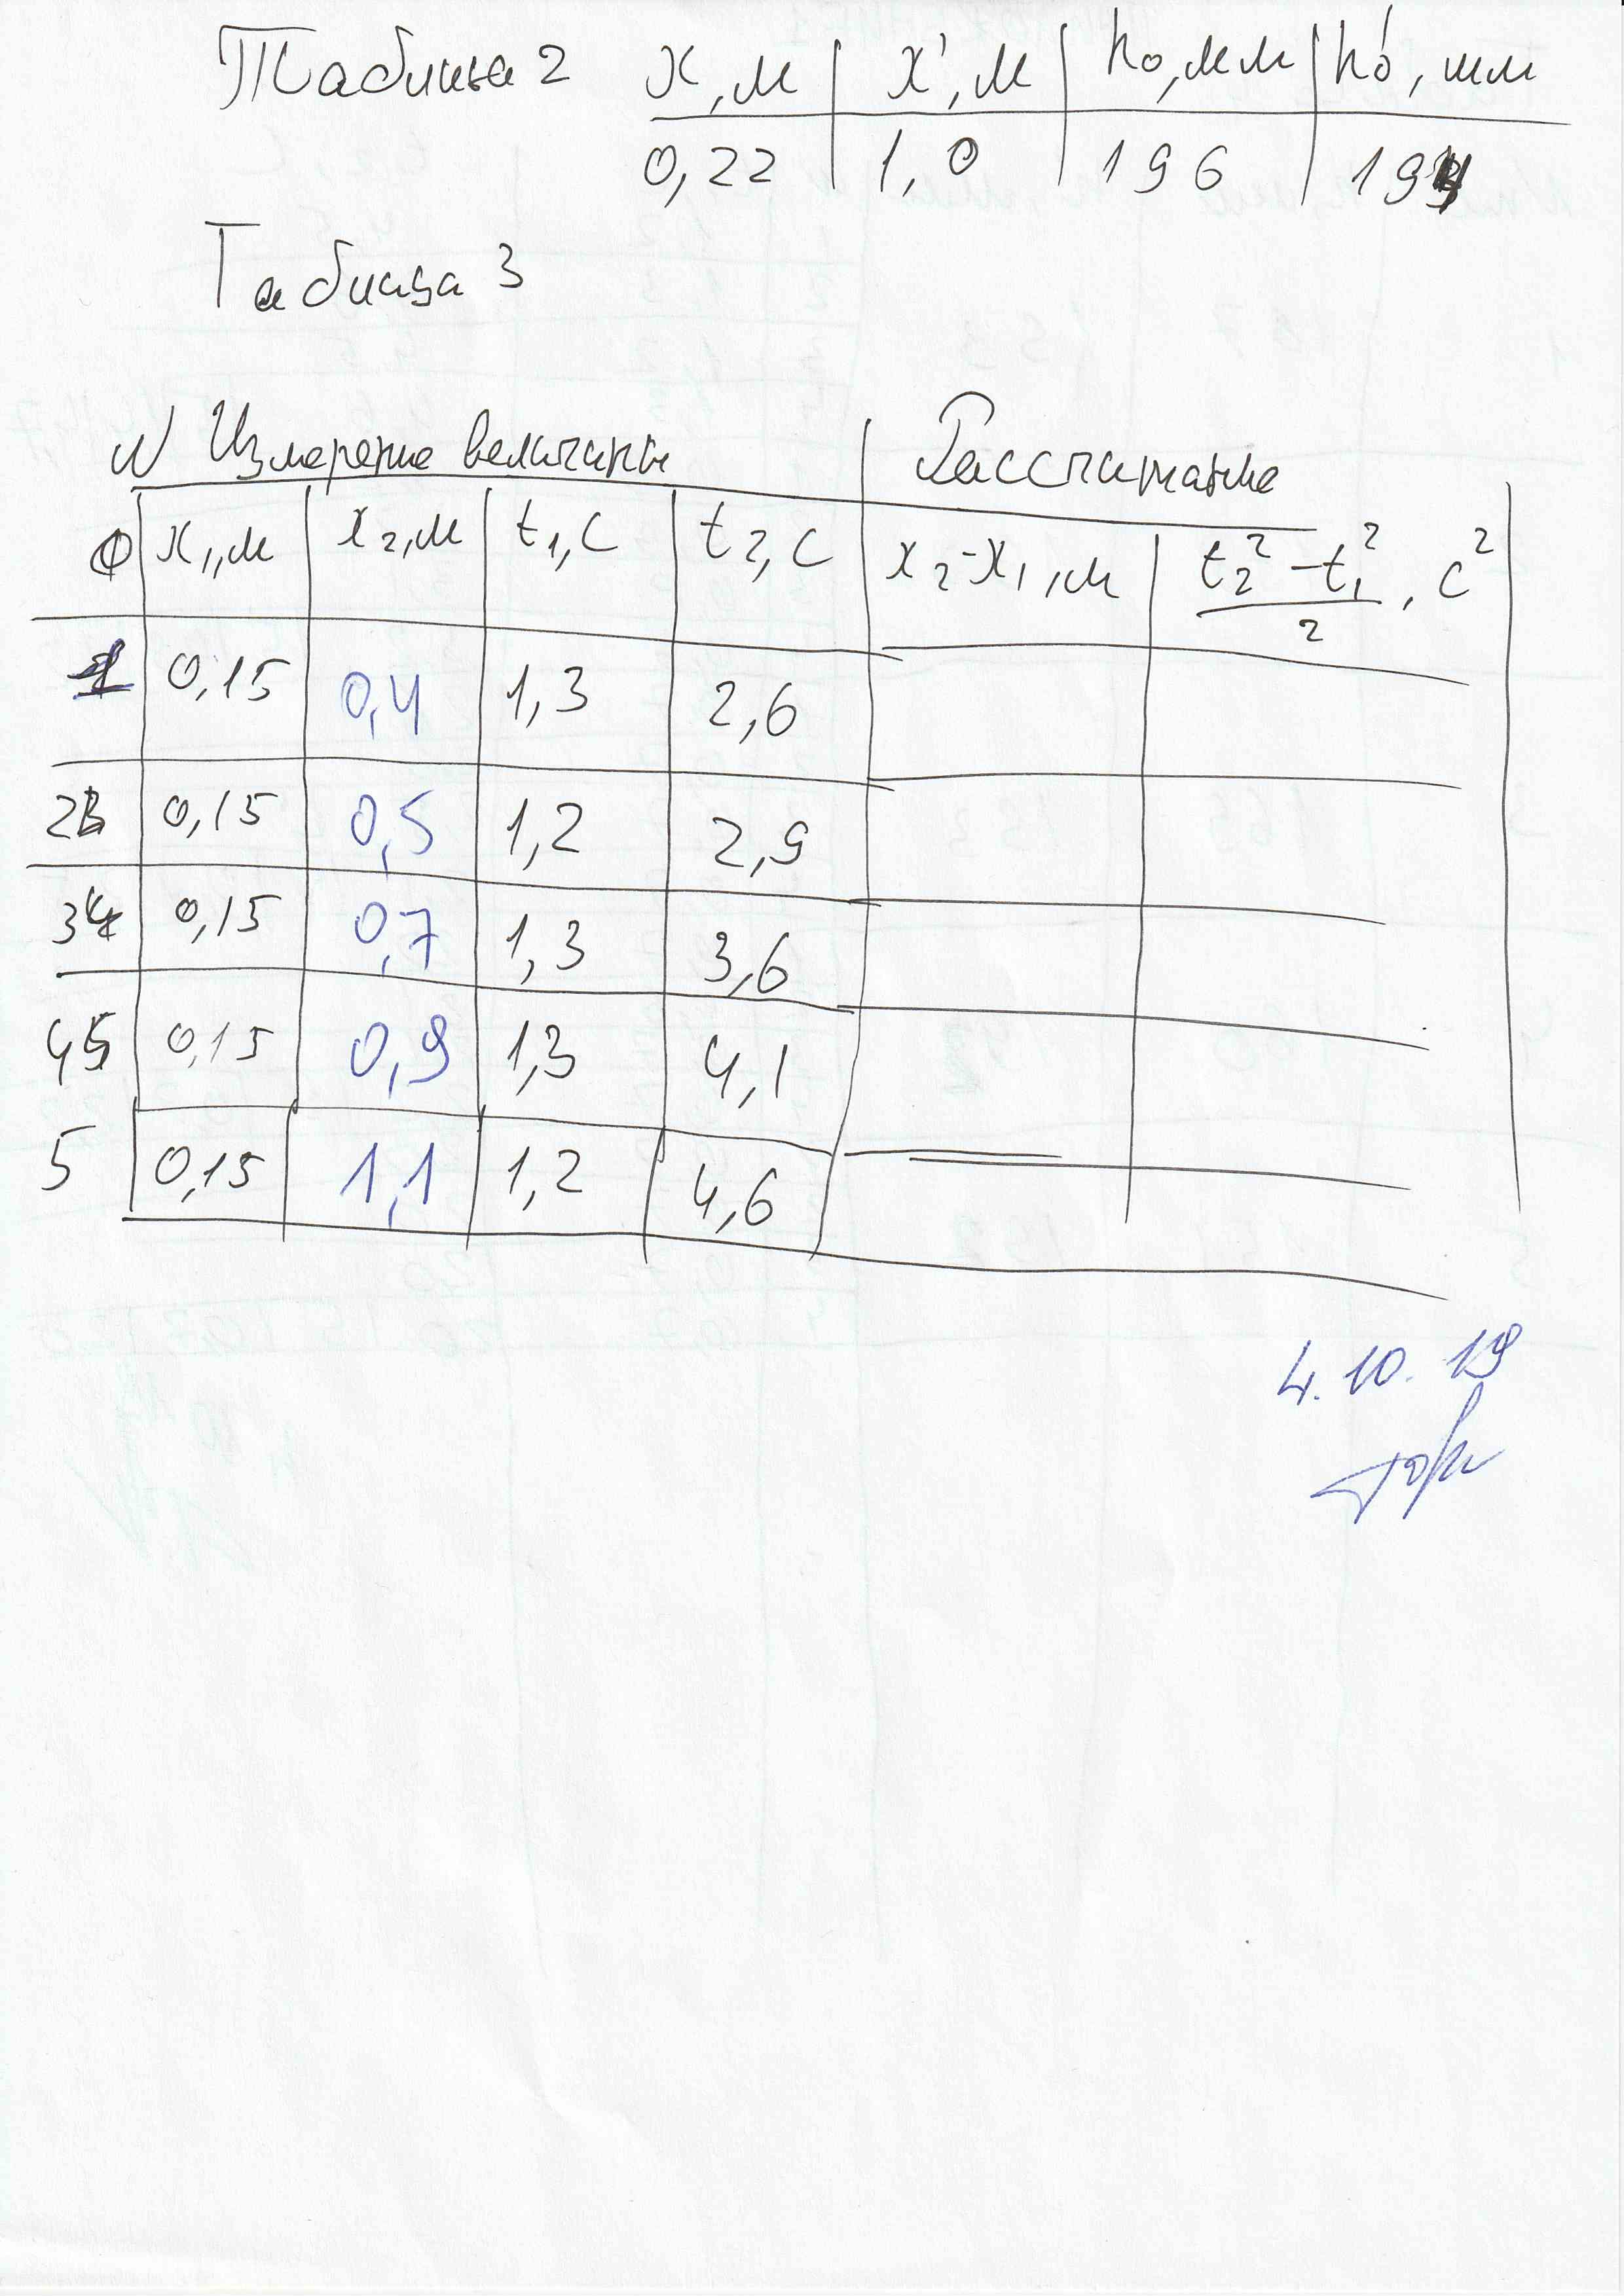 Таблица 2 x, м x', м h₀, мм h₀', мм
0,22 1,0 196 194
Таблица 3
N Измерение величины Рассчитанные
x₁, м x₂, м t₁, с t₂, с x₂-x₁, м (t₂²-t₁²)/2, с²
1 0,15 0,4 1,3 2,6
2 0,15 0,5 1,2 2,9
3 0,15 0,7 1,3 3,6
4 0,15 0,9 1,3 4,1
5 0,15 1,1 1,2 4,6
4.10.19